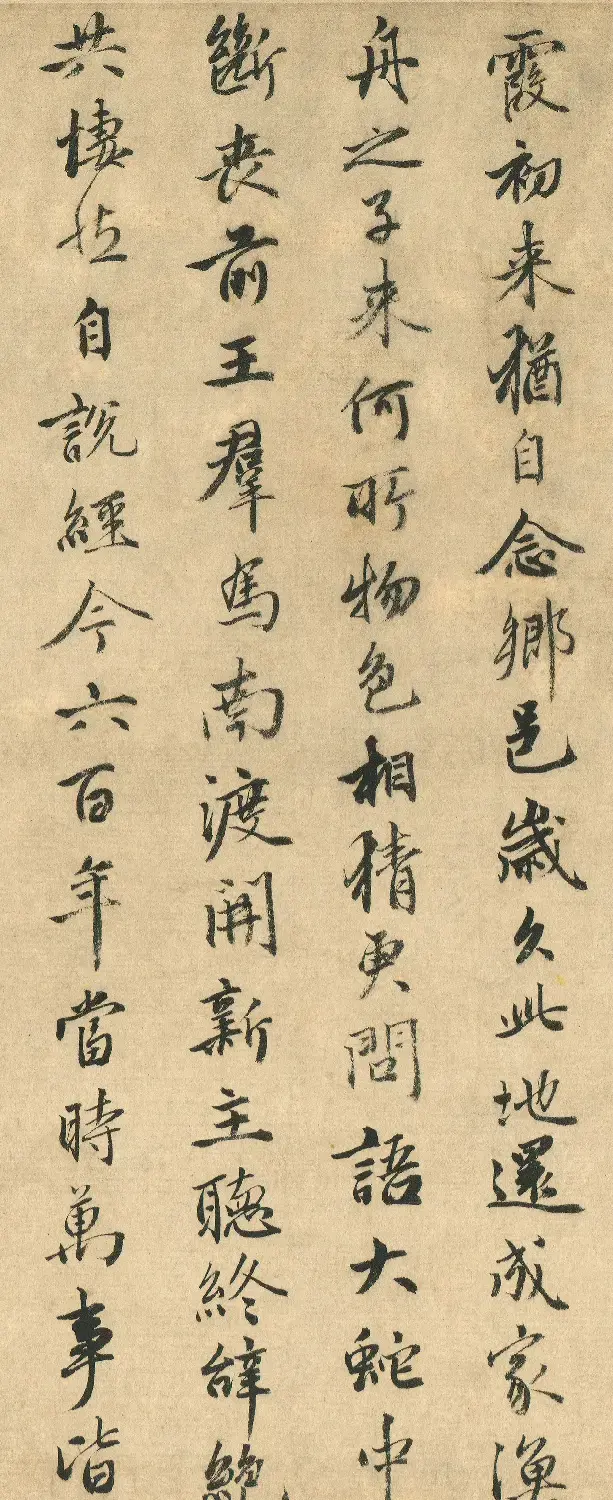 霞初来猶自念鄉邑歲久此地還成家漁
舟之子来何所物色相猜更問語大蛇中
斷喪前王羣馬南渡開新主聽終辭絕
共悽然自說經今六百年當時萬事皆